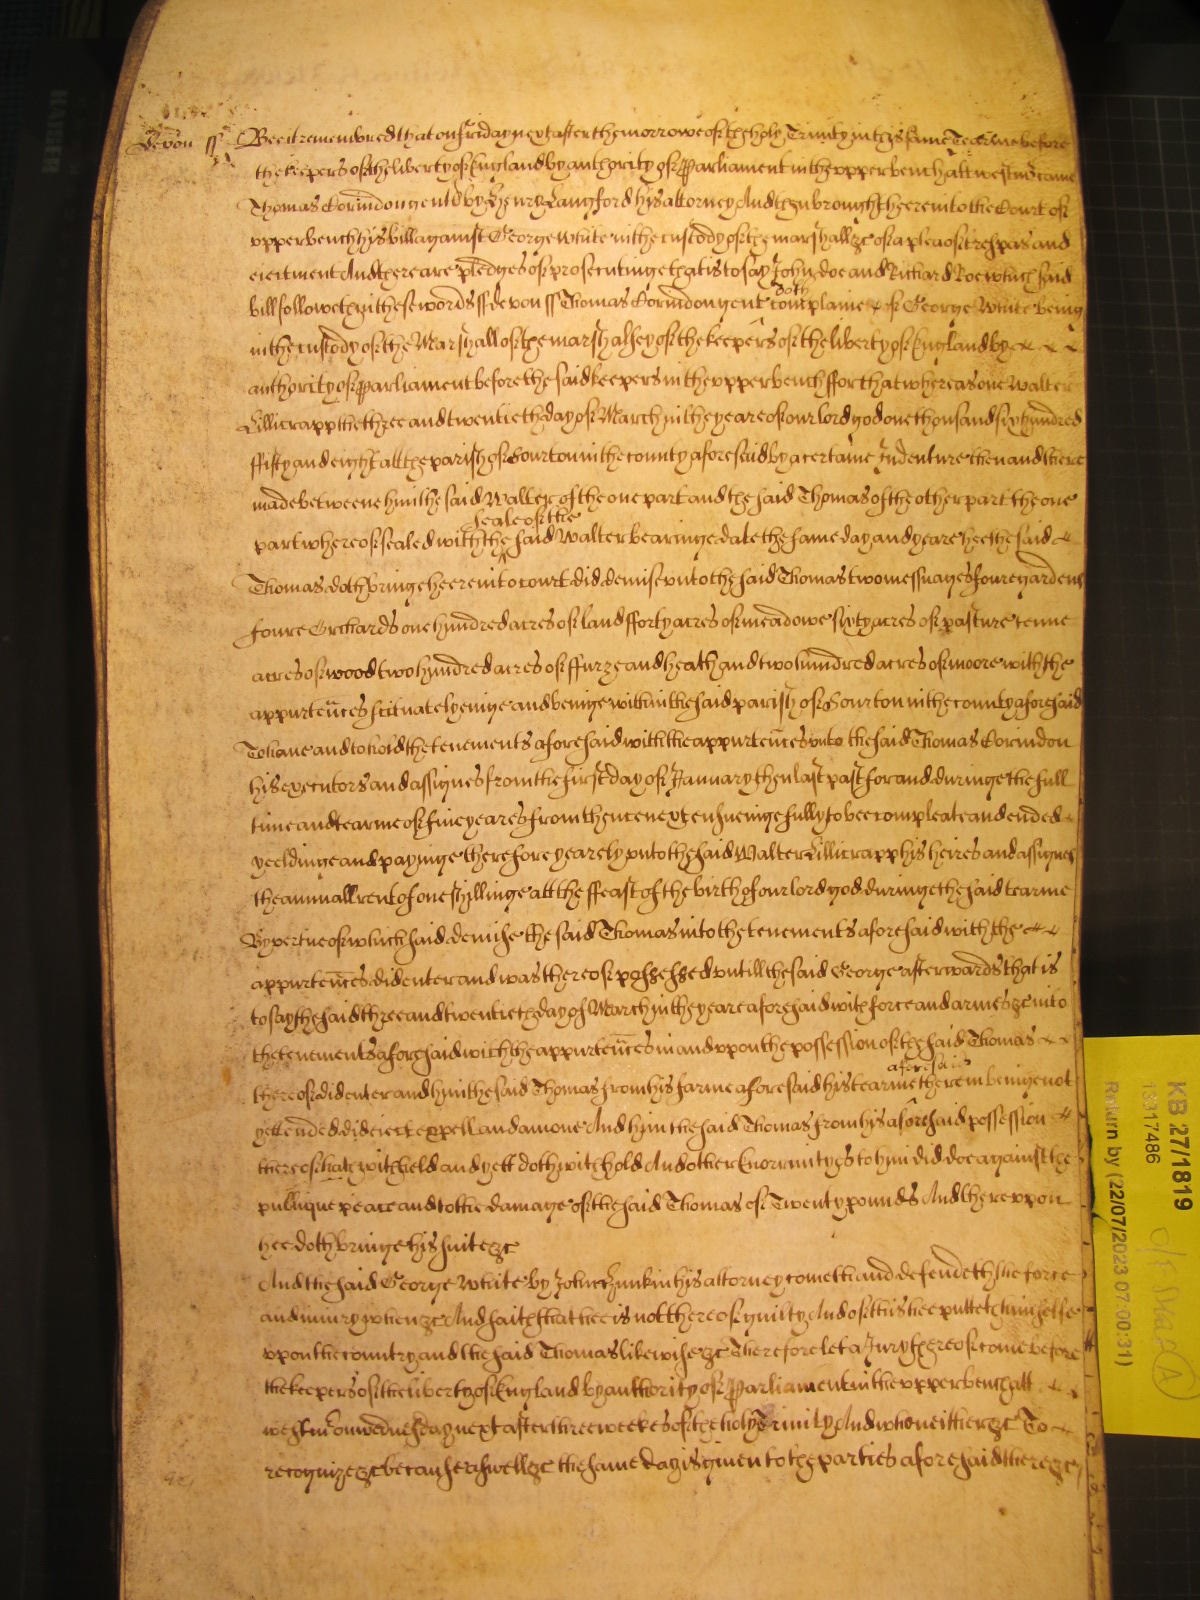 Devon ss Bee it remembred that on ffriday next after the morrowe of the holy Trinity in this same Tearme before
the keepers of the liberty of England by authority of Parliament in the upper bench att westmr came
Thomas Corindon gent by Henry Langford his attorney And then brought heere into the Court of
upper bench his bill against George White in the custody of the marshall &c of a plea of trespas and
eiectment And there are pledges of prosecutinge that is to say John doe and Richard Roe which said
bill followeth in these words ss devon ss Thomas Corindon gent doth complaine of George White being
in the custody of the Marshall of the marshalsey of the keepers of the liberty of England by
authority of Parliament before the said keepers in the upper bench ffor that whereas one Walter
Lillicrapp the three and twentieth day of March in the yeare of our lord god one thousand six hundred
ffifty and eight att the parish of Sourton in the county aforesaid by a certaine Indenture then and there
made betweene him the said Walter of the one part and the said Thomas of the other part the one
part whereof sealed with the seale of the said Walter bearinge date the same day and yeare hee the said
Thomas doth bringe heere into court did demise unto the said Thomas two messuages foure gardens
foure Orchards one hundred acres of land fforty acres of meadowe sixty acres of pasture tenne
acres of wood two hundred acres of ffurze and heath and two hundred acres of moore with the
appurtenc̄es scituate lyeinge and beinge within the said parish of Sourton in the county aforesaid
To have and to hold the tenements aforesaid with the appurtenc̄es unto the said Thomas Corindon
his executors and assignes from the first day of January then last past for and duringe the full
time and tearme of five yeares from thence next ensueinge fully to bee compleate and ended
yeeldinge and payinge therefore yearely unto the said Walter Lillicrapp his heires and assignes
the annuall rent of one shillinge att the ffeast of the birth of our lord god duringe the said tearme
By vertue of which said demise the said Thomas into the tenements aforesaid with the
appurtenc̄es did enter and was thereof possessed untill the said George afterwards that is
to say the said three and twentieth day of March in the yeare aforesaid with force and armes &c into
the tenements aforesaid with the appurtenc̄es in and upon the possession of the said Thomas
thereof did enter and him the said Thomas from his farme aforesaid his tearme aforesaid therein beinge not
yett ended did eiect expell and amove And him the said Thomas from his aforesaid possession
thereof hath witheld and yett doth withold And other Enormityes to him did doe against the
publique peace and to the damage of the said Thomas of Twenty pounds And thereupon
hee doth bringe his suite &c
And the said George White by John Hunkin his attorney cometh and defendeth the force
and iniury when &c And saith that hee is not thereof guilty And of this hee putteth himselfe
upon the country and the said Thomas likewise &c Therefore let a Jury thereof come before
the keepers of the liberty of England by authority of Parliament in the upper bench att
westmr on wednesday next after three weekes of the holy Trinity And who neither &c To
recognize &c because aswell &c the same day is given to the parties aforesaid there &c
KB 27/1819
1317486
Return by (22/07/2023 07:00:31)
A